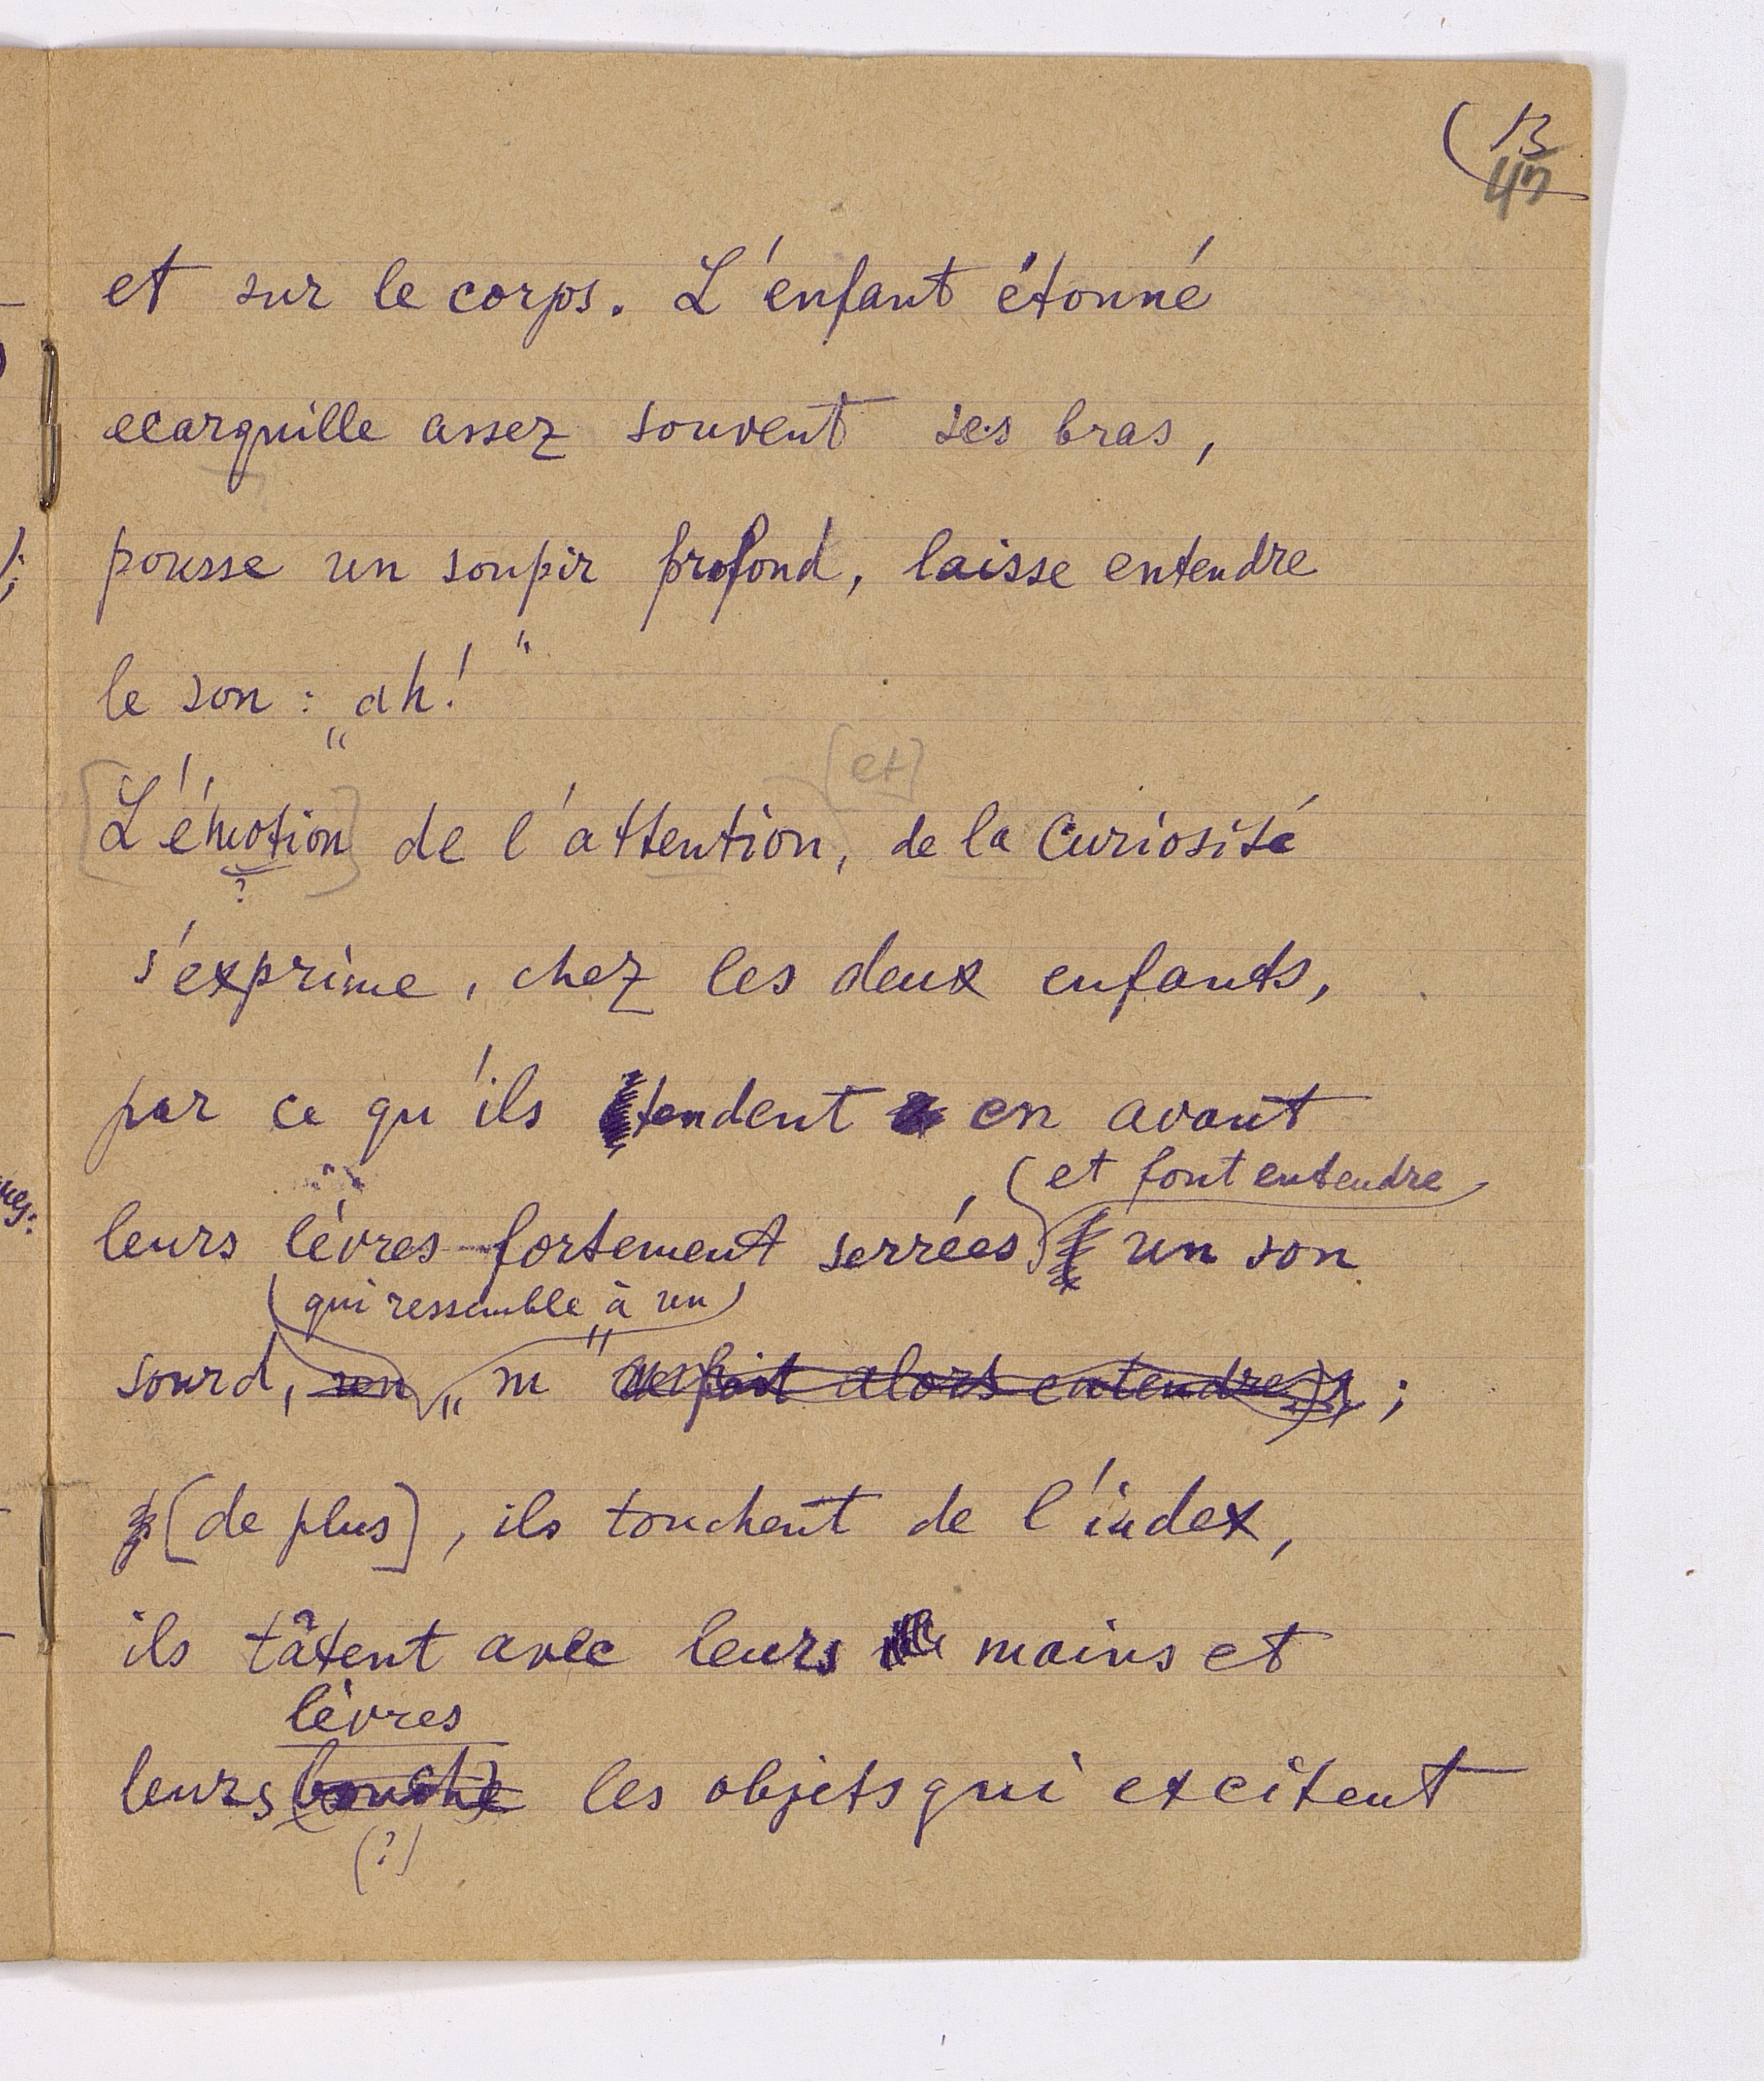 13
47
et sur le corps. L'enfant étonné
ecarquille assez souvent ses bras,
pousse un soupir profond, laisse entendre
le son : „ah!"
[et]
[L'émotion] de l'attention, de la Curiosité
?
s'exprime, chez les deux enfants,
par ce qu'ils tendent en avant
et font entendre
leurs lèvres fortement serrées, un son
qui ressemble à un
sourd, un „m" fait alors entendre ;
[de plus], ils touchent de l'index,
ils tâtent avec leurs mains et
lèvres
leurs bouche les objets qui excitent
(?)